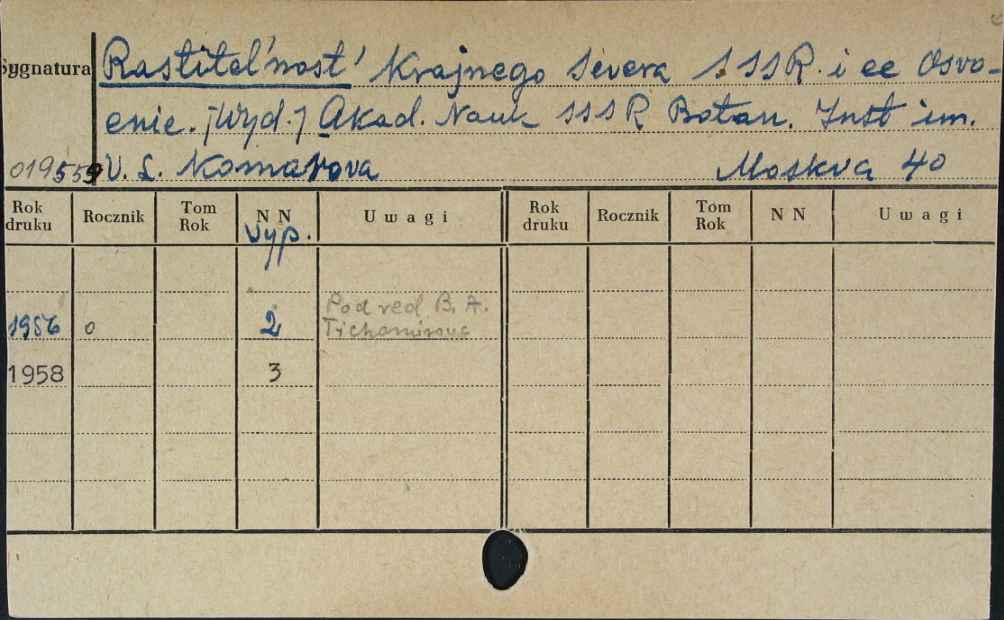 Sygnatura Rastitel'nost' Krajnego Severa SSSR. i ee Osvo-
enie. [Wyd.] Akad. Nauk SSSR Botan. Inst im.
019559 V. L. Komarova Moskva 40
Rok druku Rocznik Tom Rok NN Vyp. Uwagi Rok druku Rocznik Tom Rok NN Uwagi
Pod red B. A.
1956 0 2 Tichomirova
1958 3